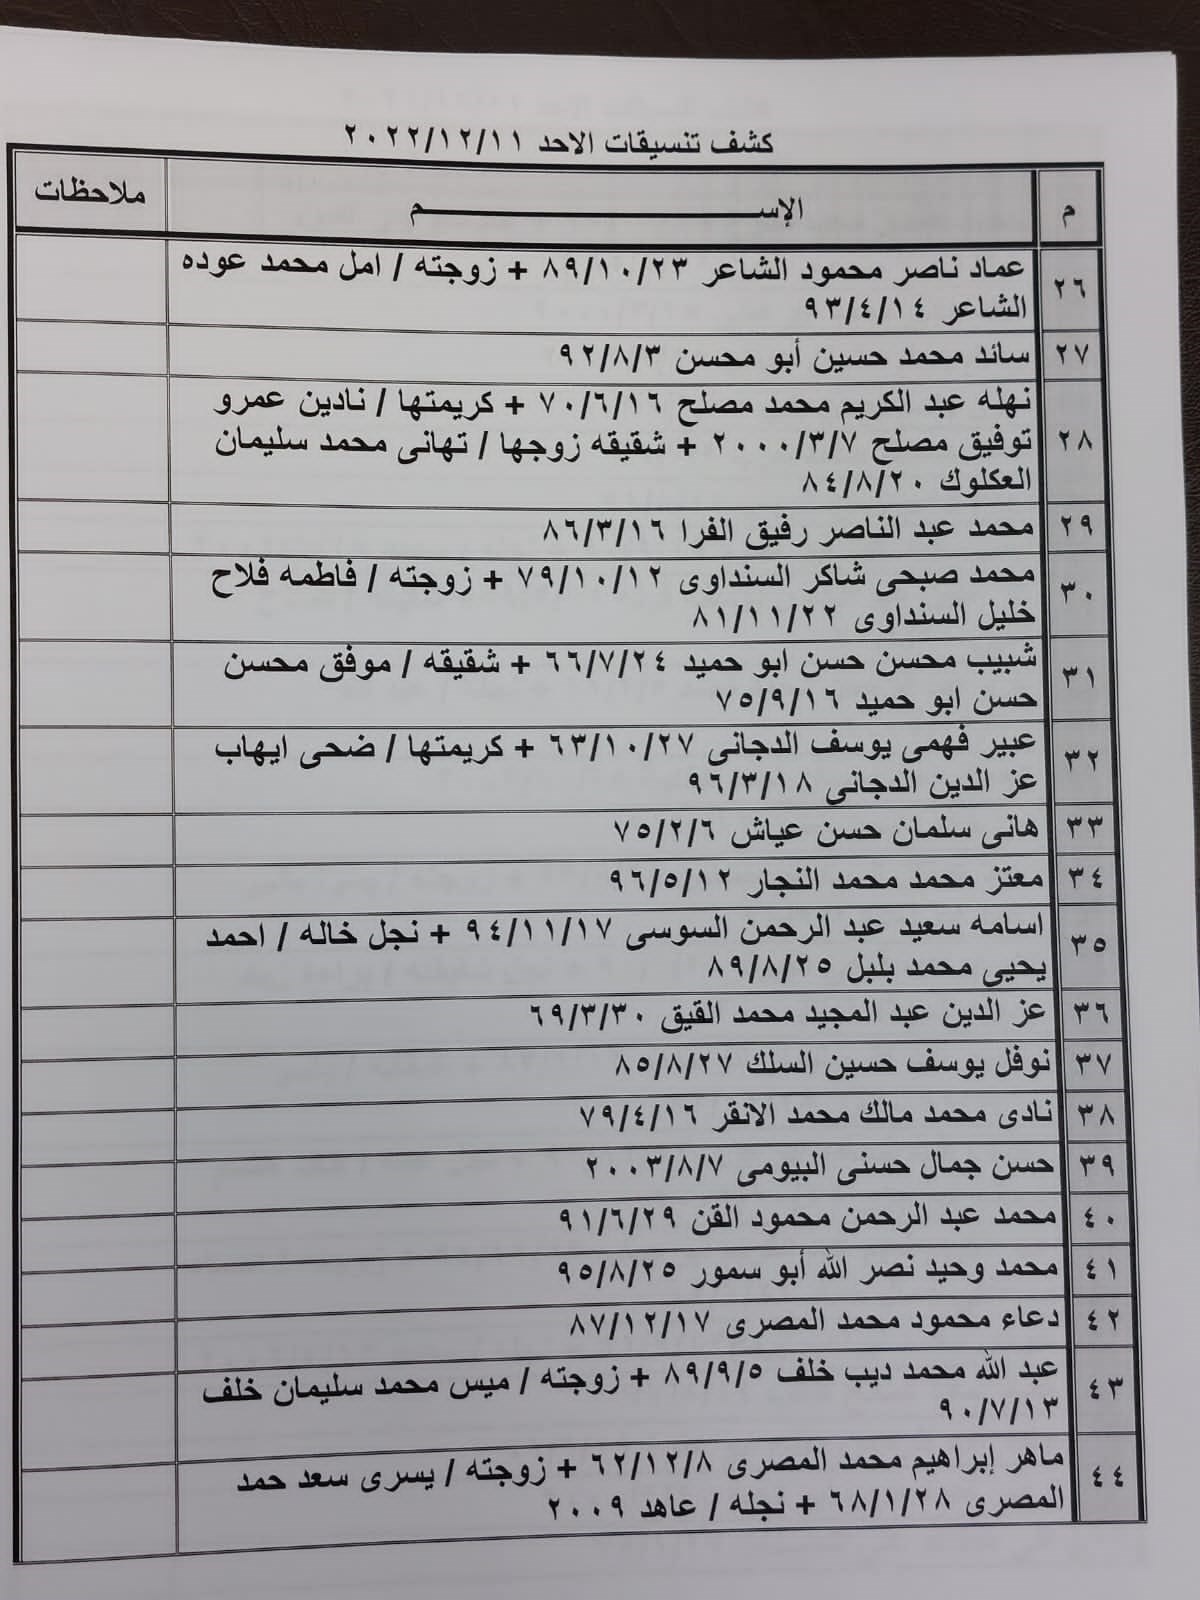 كشف تنسيقات الاحد ٢٠٢٢/١٢/١١
م الإســـــــــــم ملاحظات
٢٦ عماد ناصر محمود الشاعر ٨٩/١٠/٢٣ + زوجته / امل محمد عوده
الشاعر ٩٣/٤/١٤
٢٧ سائد محمد حسين أبو محسن ٩٢/٨/٣
٢٨ نهله عبد الكريم محمد مصلح ٧٠/٦/١٦ + كريمتها / نادين عمرو
توفيق مصلح ٢٠٠٠/٣/٧ + شقيقه زوجها / تهانى محمد سليمان
العكلوك ٨٤/٨/٢٠
٢٩ محمد عبد الناصر رفيق الفرا ٨٦/٣/١٦
٣٠ محمد صبحى شاكر السنداوى ٧٩/١٠/١٢ + زوجته / فاطمه فلاح
خليل السنداوى ٨١/١١/٢٢
٣١ شبيب محسن حسن ابو حميد ٦٦/٧/٢٤ + شقيقه / موفق محسن
حسن ابو حميد ٧٥/٩/١٦
٣٢ عبير فهمى يوسف الدجانى ٦٣/١٠/٢٧ + كريمتها / ضحى ايهاب
عز الدين الدجانى ٩٦/٣/١٨
٣٣ هانى سلمان حسن عياش ٧٥/٢/٦
٣٤ معتز محمد محمد النجار ٩٦/٥/١٢
٣٥ اسامه سعيد عبد الرحمن السوسى ٩٤/١١/١٧ + نجل خاله / احمد
يحيى محمد بلبل ٨٩/٨/٢٥
٣٦ عز الدين عبد المجيد محمد القيق ٦٩/٣/٣٠
٣٧ نوفل يوسف حسين السلك ٨٥/٨/٢٧
٣٨ نادى محمد مالك محمد الانقر ٧٩/٤/١٦
٣٩ حسن جمال حسنى البيومى ٢٠٠٣/٨/٧
٤٠ محمد عبد الرحمن محمود القن ٩١/٦/٢٩
٤١ محمد وحيد نصر الله أبو سمور ٩٥/٨/٢٥
٤٢ دعاء محمود محمد المصرى ٨٧/١٢/١٧
٤٣ عبد الله محمد ديب خلف ٨٩/٩/٥ + زوجته / ميس محمد سليمان خلف
٩٠/٧/١٣
٤٤ ماهر إبراهيم محمد المصرى ٦٢/١٢/٨ + زوجته / يسرى سعد حمد
المصرى ٦٨/١/٢٨ + نجله / عاهد ٢٠٠٩